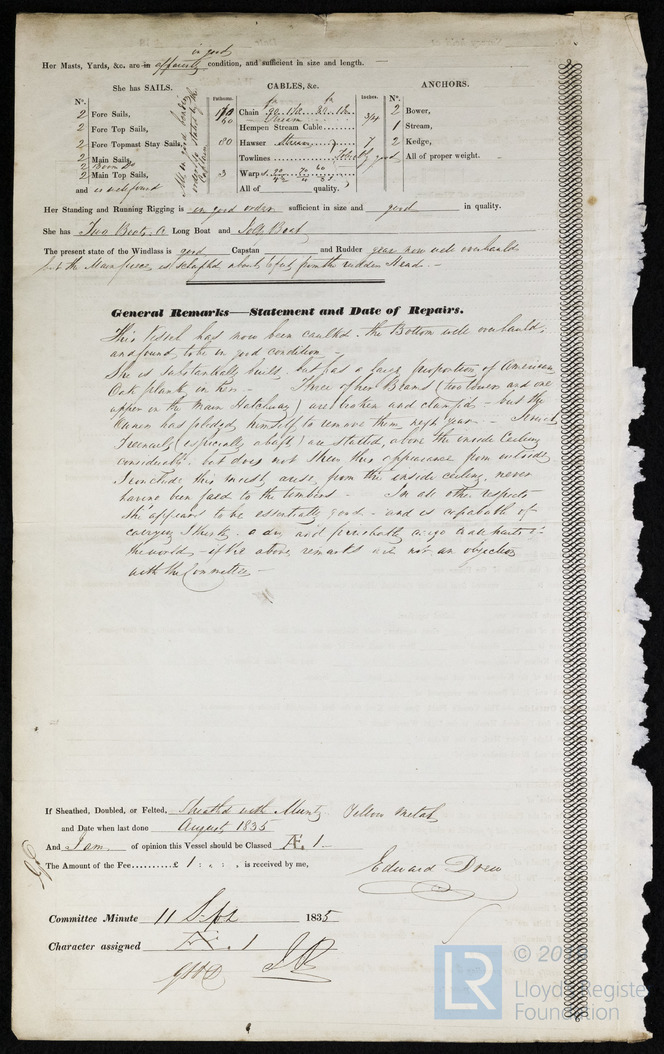 in good
Her Masts, Yards, &c. are in apparently condition, and sufficient in size and length.
She has SAILS.
CABLES, &c.
ANCHORS.
N°.
Fathoms.
Inches.
N°.
2 Fore Sails,
2 Fore Top Sails,
2 Fore Topmast Stay Sails,
2 Main Sails,
2 Boom Do
2 Main Top Sails,
and is well found
Chain
Stream
3/4
Hempen Stream Cable
80 Hawser Stream 7
Towlines
3 Warps
All of good quality.
2 Bower,
1 Stream,
2 Kedge,
All of proper weight.
Her Standing and Running Rigging is in good order sufficient in size and good in quality.
She has Two Boats, a Long Boat and Jolly Boat
The present state of the Windlass is good Capstan and Rudder gear now well overhauld
but the Main piece is scarphd about 6 feet from the rudder Head. -
General Remarks—Statement and Date of Repairs.
This Vessel has now been caulkd. the Bottom well overhauld,
and found to be in good condition -
She is substantially build, but has a large proportion of American
Oak plank in her - Three of her Beams (two lower and one
upper in the Main Hatchway) are broken and clampd - but the
Owner has pledged himself to remove them next year -
Treenails (especially abaft) are started above the inside Ceiling
considerably, but does not shew this appearance from outside,
I conclude this must arise from the inside ceiling never
having been faed to the timbers - In all other respects
she appears to be essentially good - and is capable of
carrying I think a dry and perishable cargo to all parts of
the world - if the above remarks are not an objection
with the Committee -
If Sheathed, Doubled, or Felted, Sheathd with Muntz Yellow Metal
and Date when last done August 1835
And I am of opinion this Vessel should be Classed Æ 1
The Amount of the Fee..........£ 1 : . : . is received by me,
Edward Drew
Committee Minute 11 Sept 1835
Character assigned Æ . 1
© 20
Lloyd's Register
Foundation
LR